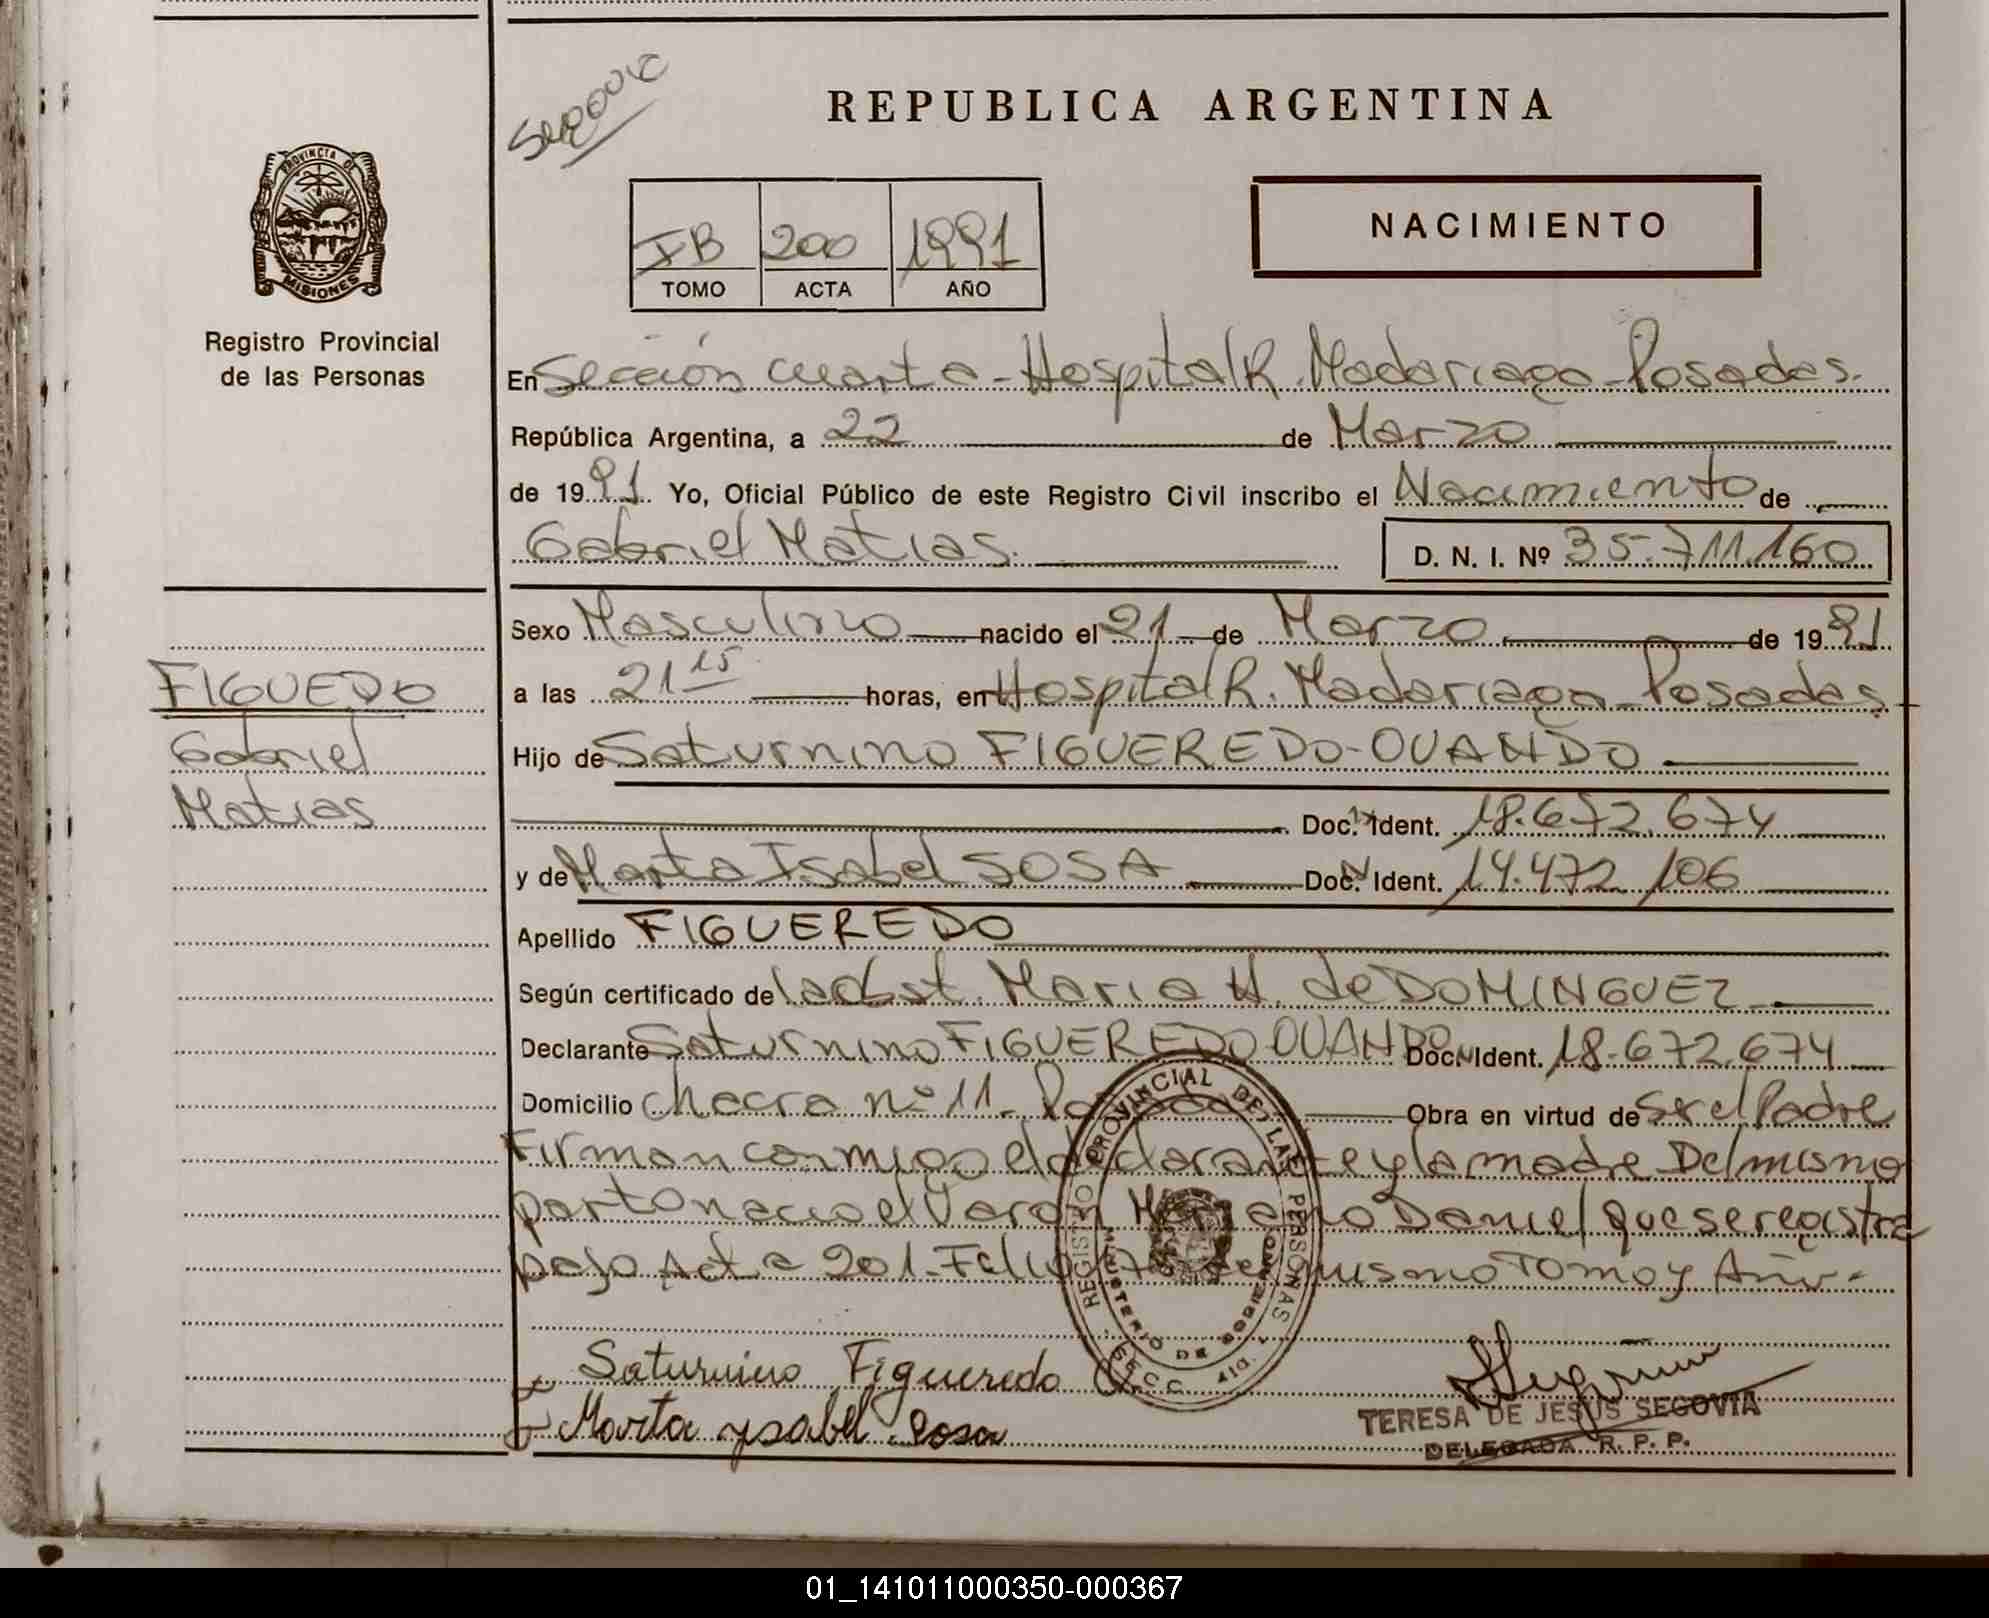 REPUBLICA ARGENTINA
PROVINCIA DE
MISIONES
Registro Provincial
de las Personas
IB 200 1991
TOMO ACTA AÑO
NACIMIENTO
En Sección cuarta - Hospital R. Madariaga - Posadas.
República Argentina, a 22 de Marzo
de 1991 Yo, Oficial Público de este Registro Civil inscribo el Nacimiento de
Gabriel Matias. D. N. I. Nº 35.711.160
Sexo Masculino nacido el 21 de Marzo de 1991
a las 21 15 horas, en Hospital R. Madariaga - Posadas
FIGUEDO
Gabriel
Matias
Hijo de Saturnino FIGUEREDO-OVANDO
Doc. Ident. 18.672.674
y de Marta Isabel SOSA Doc. Ident. 14.472.106
Apellido FIGUEREDO
Según certificado de la obst. Maria H. de DOMINGUEZ
Declarante Saturnino FIGUEREDO OVANDO Doc. Ident. 18.672.674
Domicilio chacra nº 11 - Posadas Obra en virtud de Ser el Padre
Firman conmigo el declarante y la madre Del mismo
parto nacio el Varon Mariano Daniel que se registra
bajo Acta 201 - Folio del mismo Tomo y Año.-
REGISTRO PROVINCIAL DE LAS PERSONAS
MINISTERIO DE GOBIERNO
SECC. 4ª
Saturnino Figueredo O.
Marta ysabel sosa
TERESA DE JESUS SEGOVIA
DELEGADA R. P. P.
01_141011000350-000367